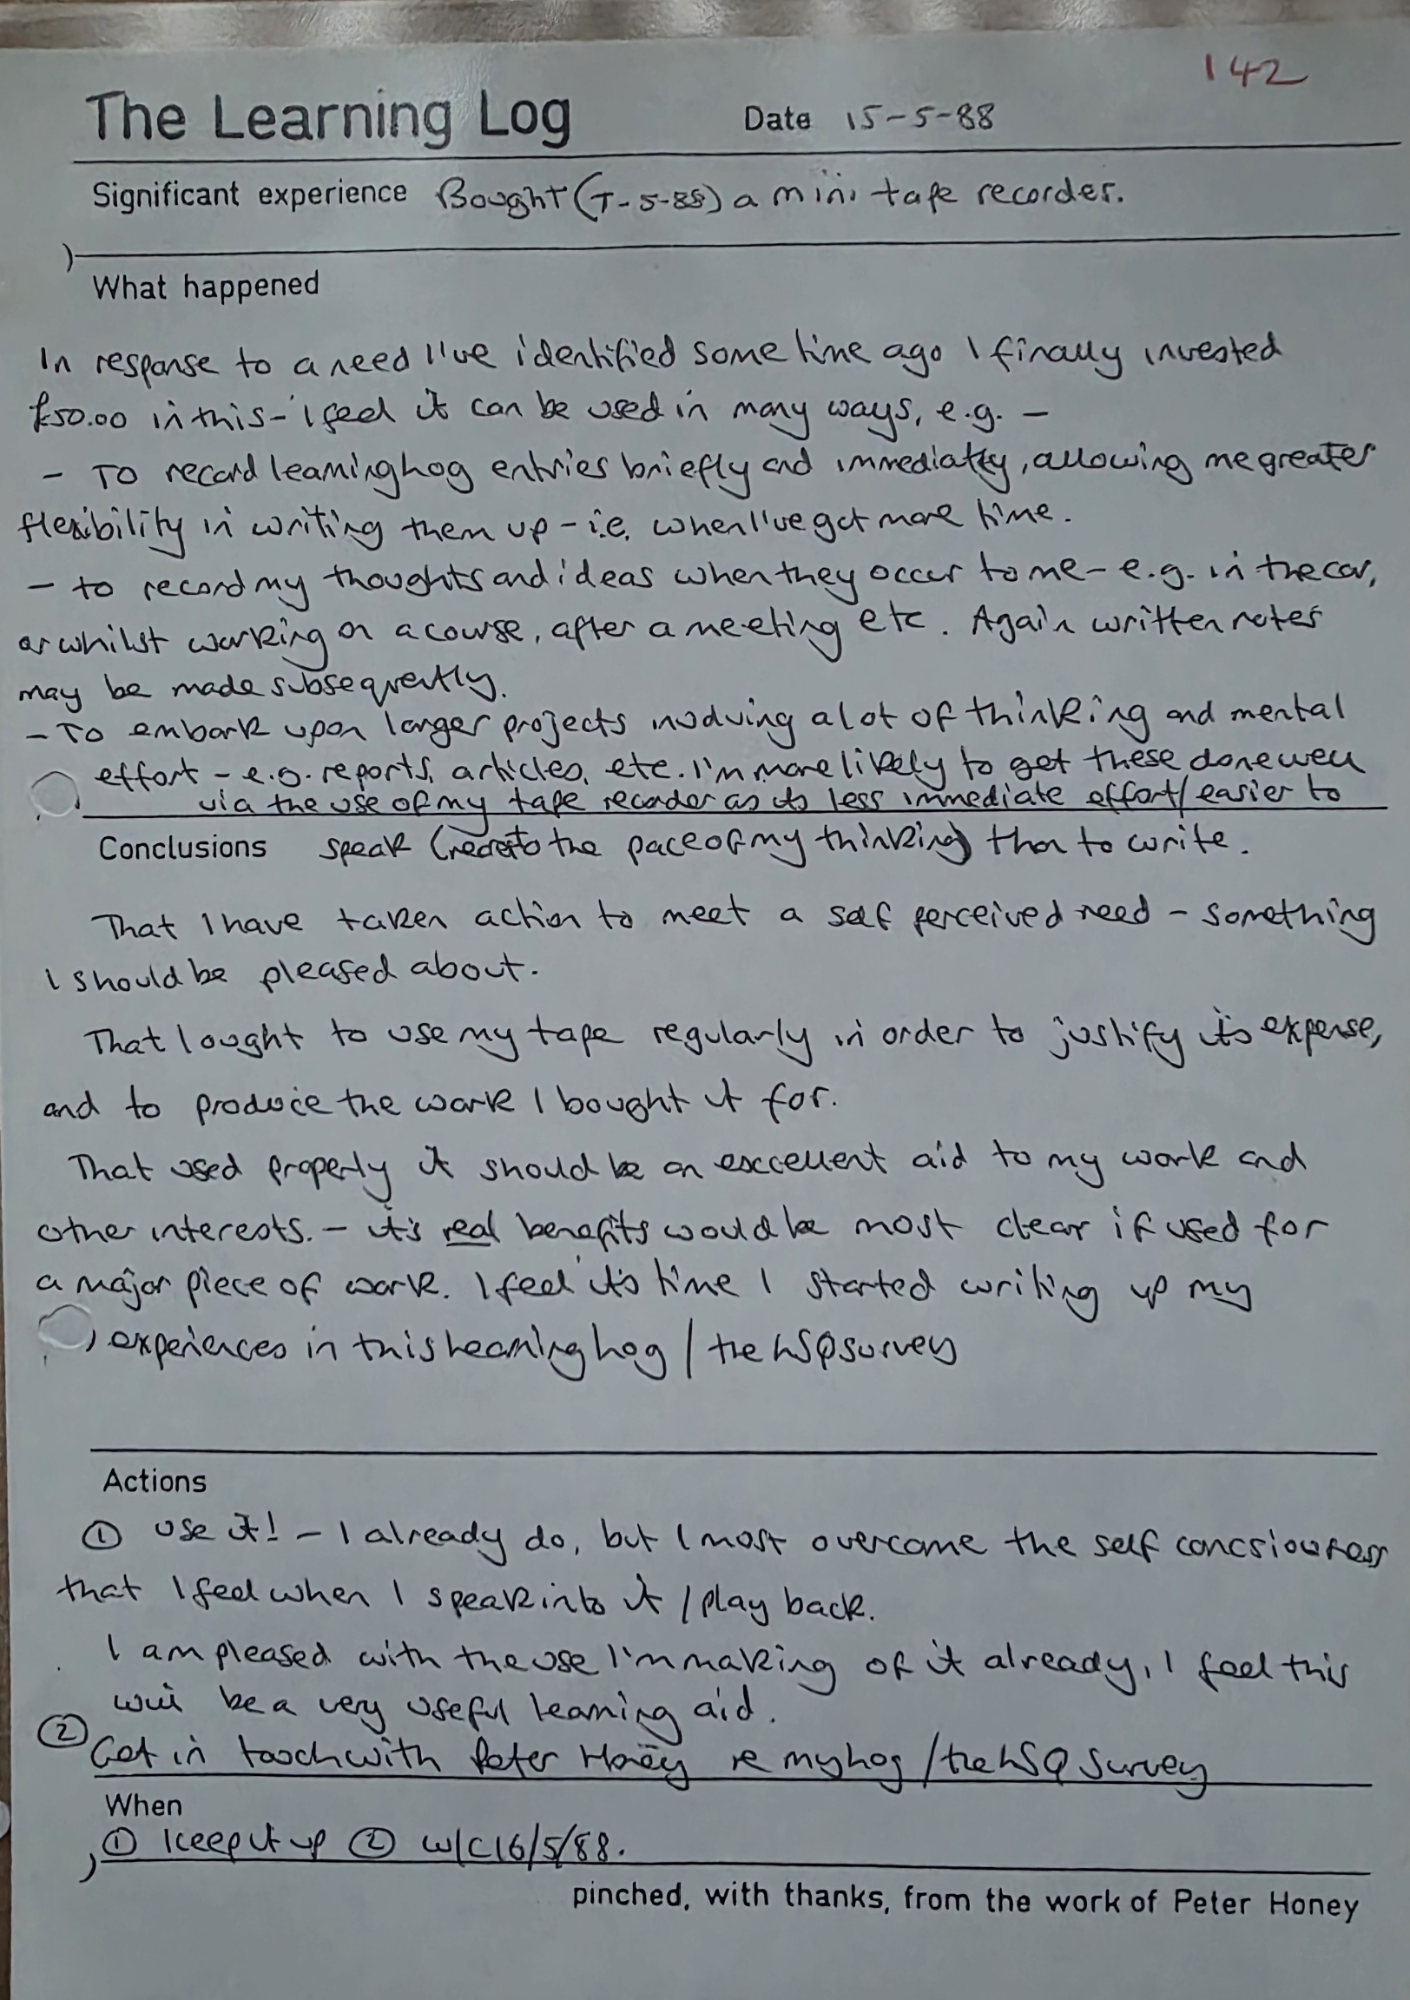 142
The Learning Log Date 15-5-88
Significant experience Bought (7-5-88) a mini tape recorder.
What happened
In response to a need I've identified some time ago I finally invested
£50.00 in this - I feel it can be used in many ways, e.g. -
- To record learning Log entries briefly and immediatly, allowing me greater
flexibility in writing them up - i.e. when I've got more time.
- to record my thoughts and ideas when they occur to me - e.g. in the car,
or whilst working on a course, after a meeting etc. Again written notes
may be made subsequently.
- To embark upon larger projects involving a lot of thinking and mental
effort - e.g. reports, articles, etc. I'm more likely to get these done well
via the use of my tape recorder as its less immediate effort/easier to
Conclusions speak ( to the pace of my thinking) than to write.
That I have taken action to meet a self perceived need - something
I should be pleased about.
That I ought to use my tape regularly in order to justify its expense,
and to produce the work I bought it for.
That used properly it should be an excellent aid to my work and
other interests. - it's real benefits would be most clear if used for
a major piece of work. I feel it's time I started writing up my
experiences in this Learning Log / the LSQ survey
Actions
① Use it! - I already do, but I must overcome the self concsiousness
that I feel when I speak into it / play back.
I am pleased with the use I'm making of it already, I feel this
will be a very useful learning aid.
② Get in touch with Peter Honey re my Log / the LSQ survey
When
① Keep it up ② W/C 16/5/88.
pinched, with thanks, from the work of Peter Honey